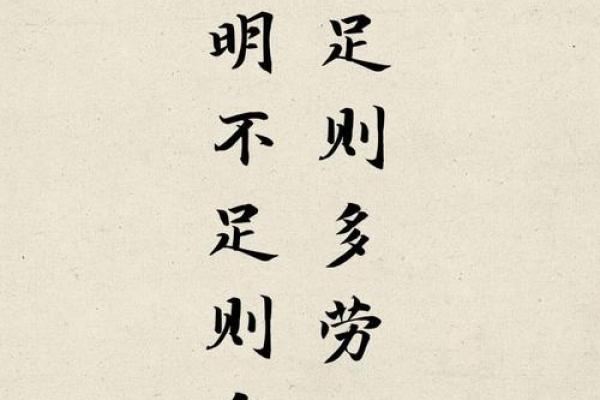 足则多劳
明不足则